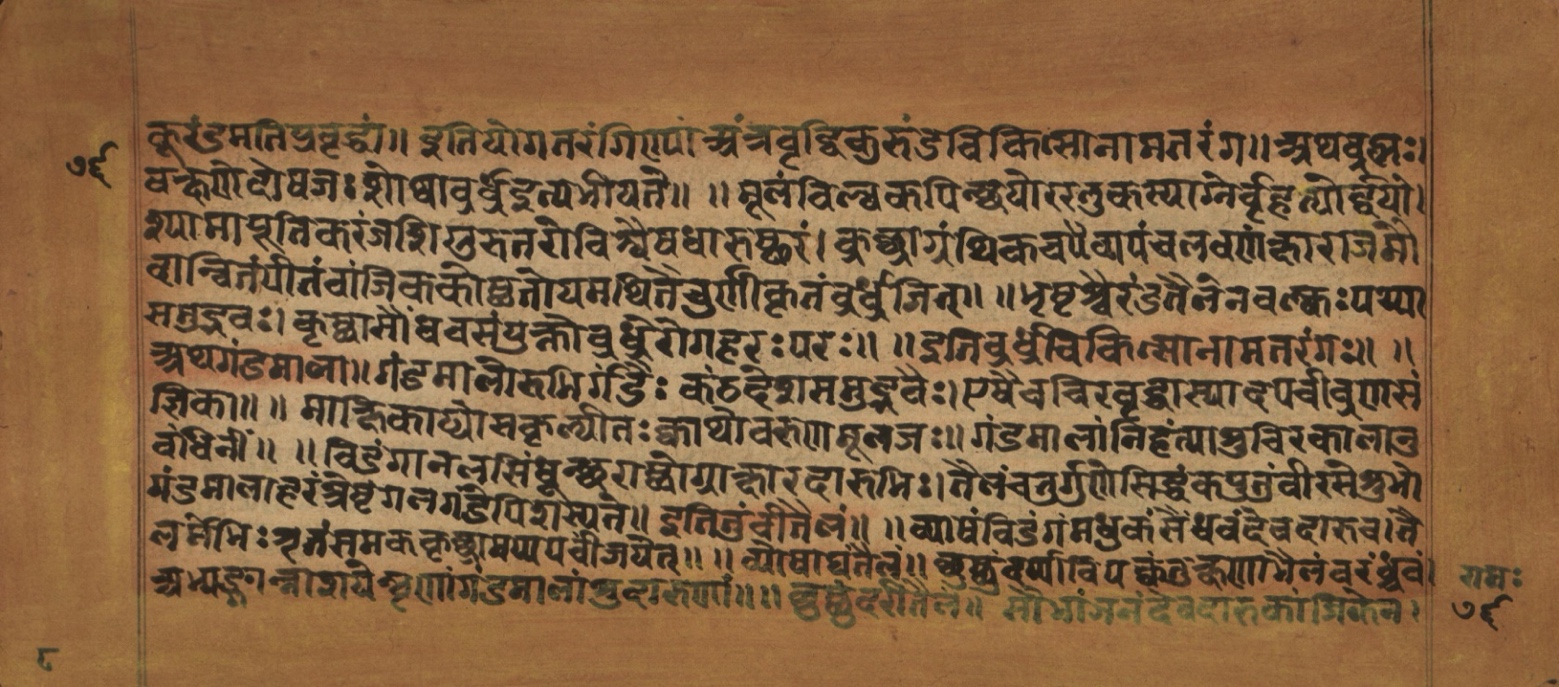 कूरंडमतिप्रवृद्धां॥ इतियोगतरंगिण्यां अंत्रवृद्धिकुरुंडचिकित्सानामतरंग॥ अथवुध्नः।
७६
वन्क्षणेदोषजः शोथोवुर्ध्नइत्यभीयते॥ ॥ मूलंविल्वकपित्थयोररलुकस्याग्नेर्वृहत्योर्द्वयो।
श्यामापूतिकरंजशिग्रुतरोविश्वौषधारुष्करं। कृष्णाग्रंथिकचव्यपंचलवणंक्षाराजमो
दान्वितंपीतंकांजिककोष्णतोयमथितैचूर्णीकृतंवुर्ध्नजित्॥ ॥ भृष्टश्चैरंडतैलेनवल्कःपथ्या
समुद्भवः। कृष्णासैंधवसंयुक्तोवुर्ध्नरोगहरःपरः॥ ॥ इतिवुर्ध्नचिकित्सानामतरंगः॥ ॥
अथगंडमाला॥ गंडमालोरुभिर्गंडैः कंठदेशसमुद्भवैः। एषैवचिरवृद्धास्यादपचीवुणसं
ज्ञिका॥ ॥ माक्षिकाढ्योसकृत्पीतःक्वाथोवरुणमूलजः॥ गंडमालांनिहंत्याशुचिरकालानु
वंधिनीं॥ ॥ विडंगानलसिंधूत्थराष्णोग्राक्षारदारुभिः। तैलंचतुर्गुणेसिद्धंकटुतुंवीरसेशुभे॥
गंडमालाहरंश्रेष्टंगलगंडेपिशस्यते॥ इतितुंवीतैलं॥ ॥ व्योषंविडंगंमधुकंसैंधवंदेवदारुच। तै
लमेभिः शृतं
अभ्यङ्गान्नाशयेन्नृणांगंडमालांसुदारुणां॥ ॥ छुछुंदरीतैलं॥ सौभांजनंदेवदारुकांजिकेन।
रामः
७६
८